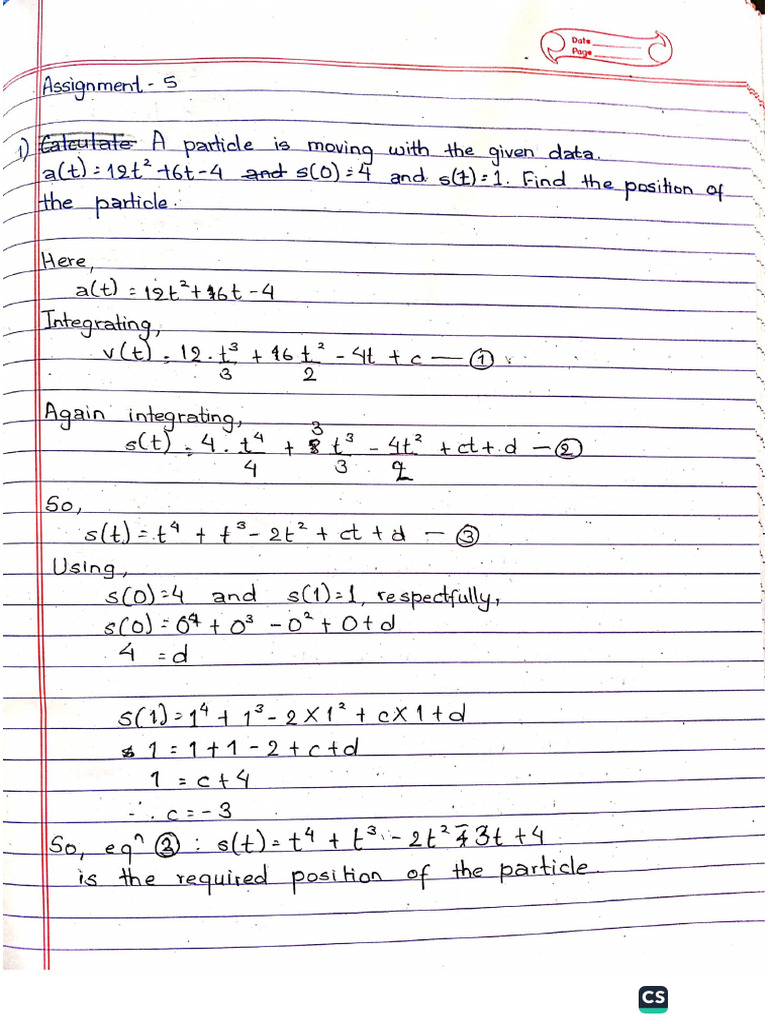 Date
Page
Assignment - 5
1) Calculate A particle is moving with the given data.
a(t) = 12t² + 6t - 4 and s(0) = 4 and s(t) = 1. Find the position of
the particle.
Here,
a(t) = 12t² + 6t - 4
Integrating,
v(t) = 12 . t³/3 + 6 t²/2 - 4t + c — ①
Again integrating,
s(t) = 4 . t⁴/4 + 3 t³/3 - 4t²/2 + ct + d — ②
So,
s(t) = t⁴ + t³ - 2t² + ct + d — ③
Using,
s(0) = 4 and s(1) = 1, respectfully,
s(0) = 0⁴ + 0³ - 0² + 0 + d
4 = d
s(1) = 1⁴ + 1³ - 2 X 1² + c X 1 + d
1 = 1 + 1 - 2 + c + d
1 = c + 4
∴ c = -3
So, eqⁿ ③ : s(t) = t⁴ + t³ - 2t² - 3t + 4
is the required position of the particle.
CS